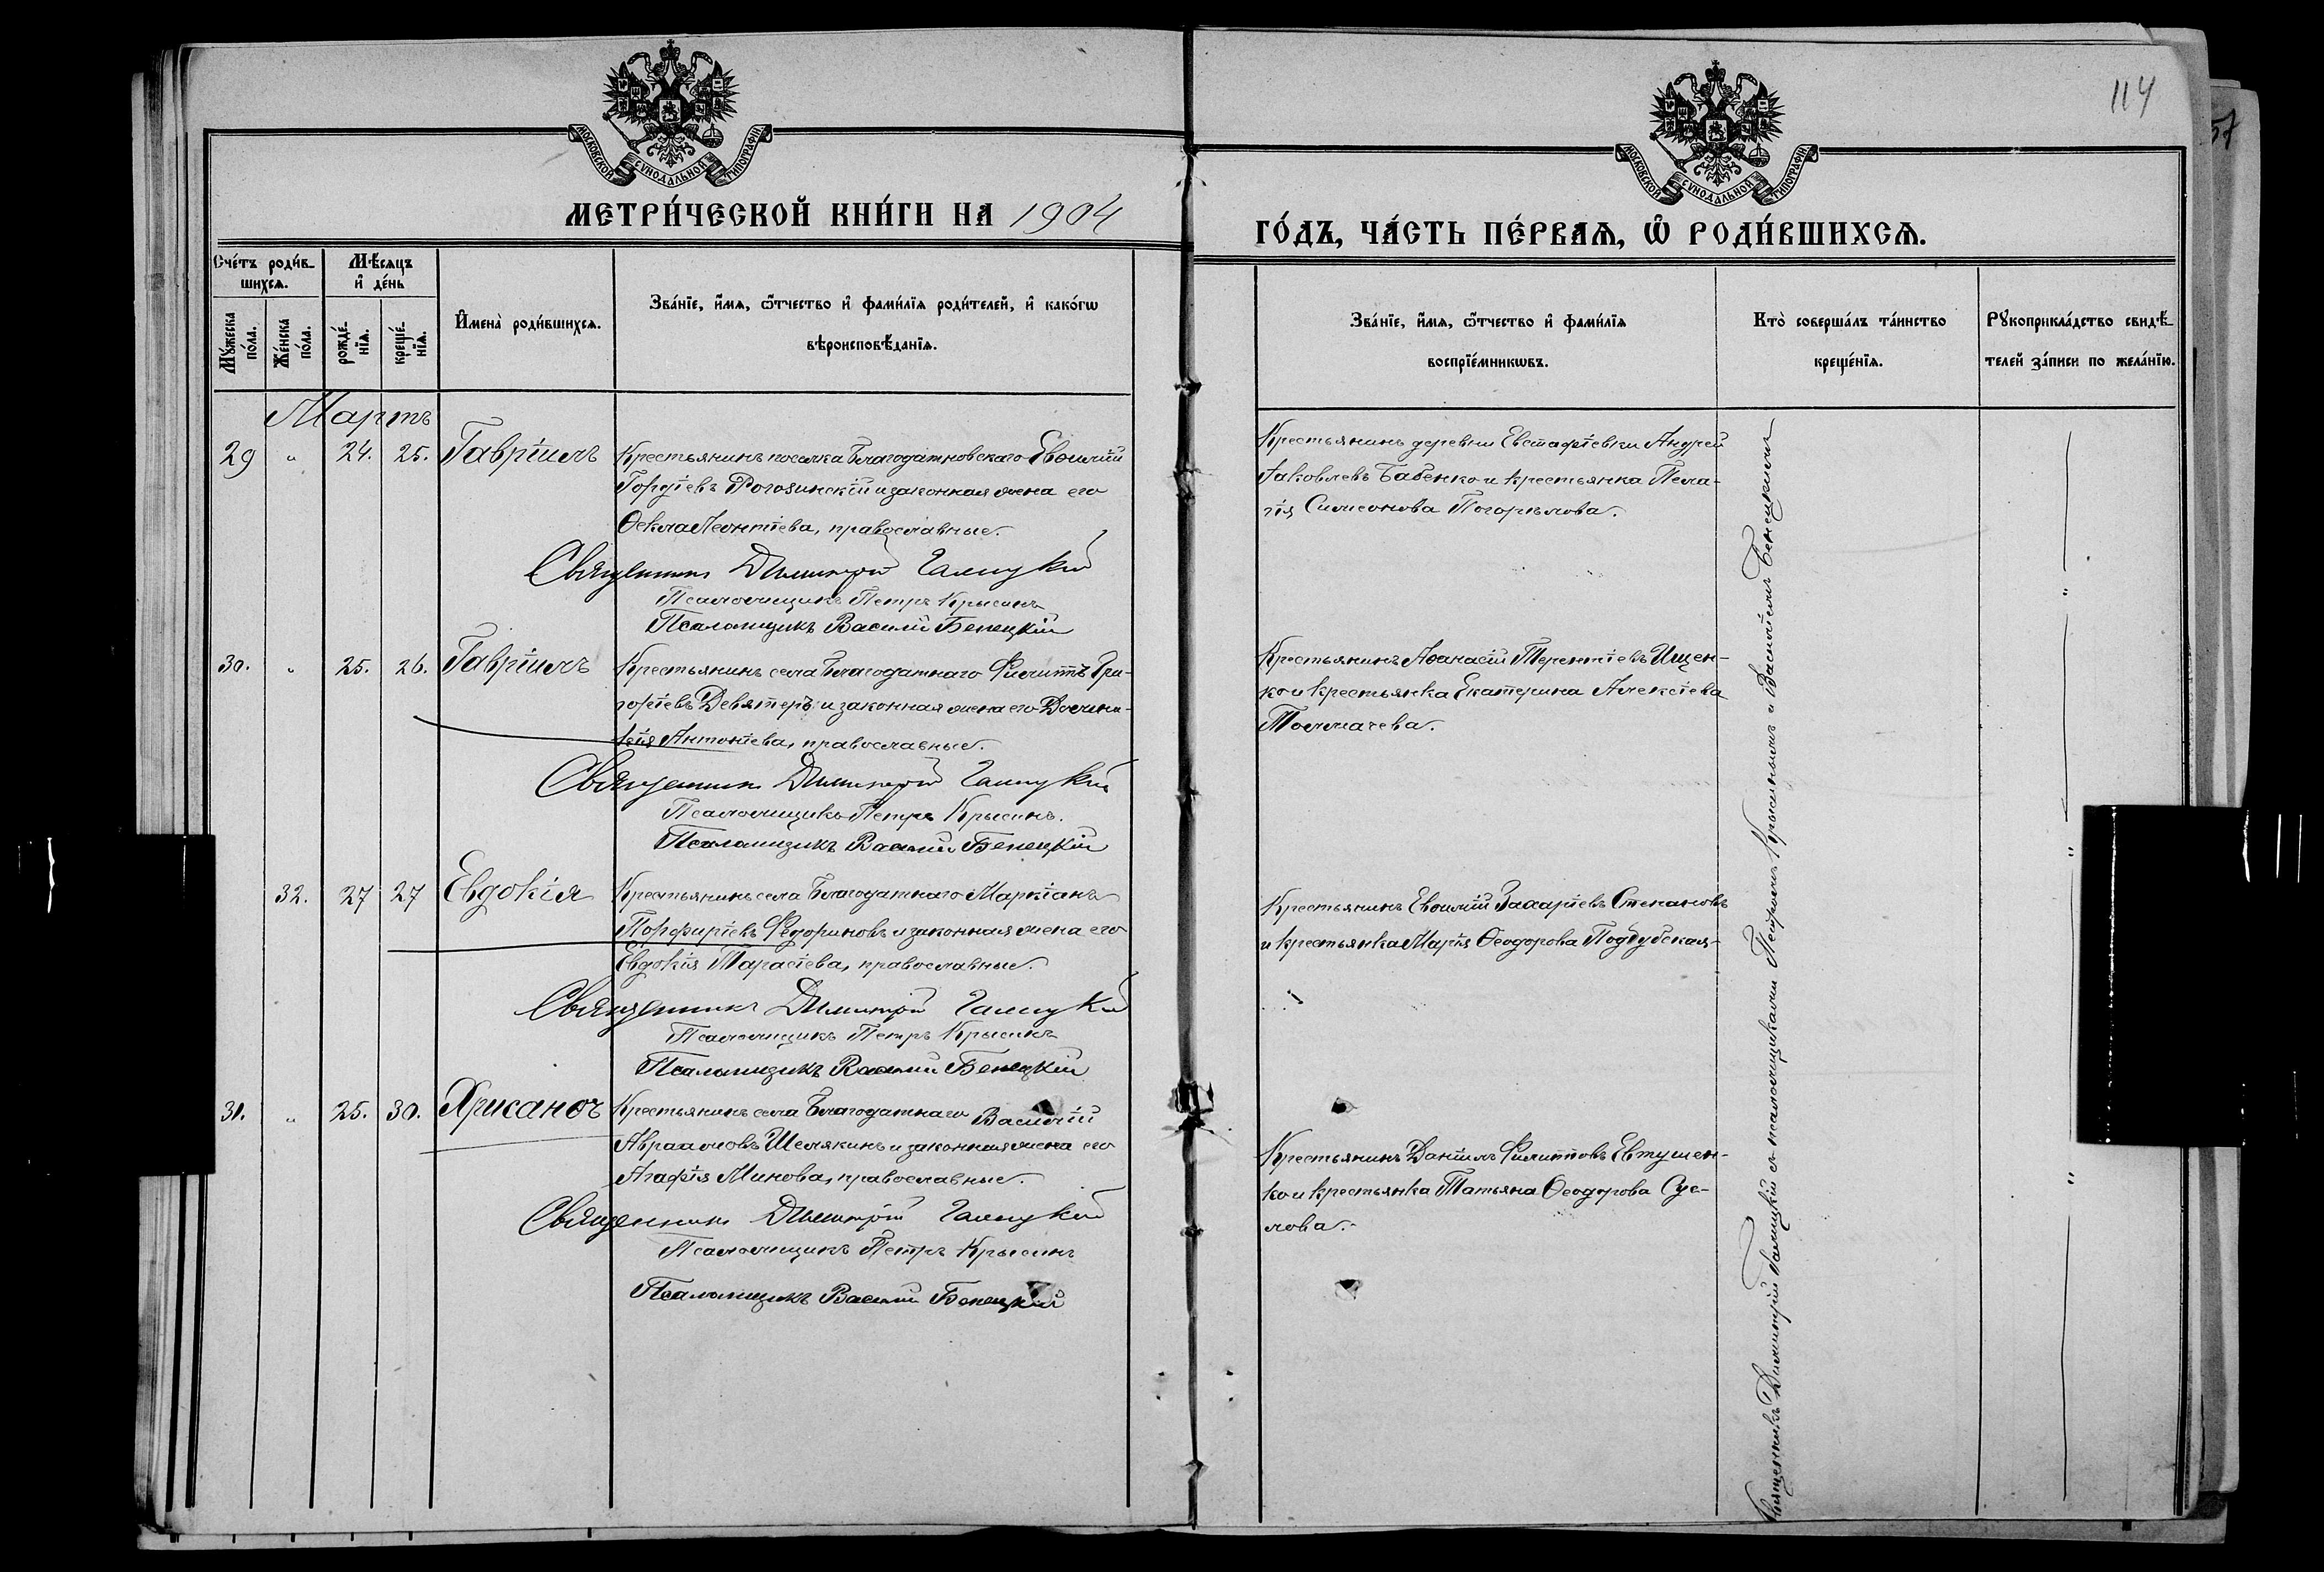 114
57
МОСКОВСКОЙ СУНОДАЛЬНОЙ ТИПОГРАФІИ
МОСКОВСКОЙ СУНОДАЛЬНОЙ ТИПОГРАФІИ
МЕТРИ́ЧЕСКОЙ КНИ́ГИ НА 1904
ГО́ДЪ, ЧА́СТЬ ПЕ́РВАѦ, Ѡ҆ РОДИ́ВШИХСѦ.
Сче́тъ роди́в-
шихсѧ.
Мꙋ́жеска по́ла.
Же́нска по́ла.
Мѣ́сѧцъ
и҆ де́нь
рожде́-
нїѧ.
креще́-
нїѧ.
И҆мена̀ роди́вшихсѧ.
Зва́нїе, и҆́мѧ, ѻ҆́тчество и҆ фами́лїѧ роди́телей, и҆ како́гѡ
вѣроисповѣ́данїѧ.
Зва́нїе, и҆́мѧ, ѻ҆́тчество и҆ фами́лїѧ
воспрїе́мникѡвъ.
Кто̀ соверша́лъ та́инство
креще́нїѧ.
Рꙋкоприкла́дство свидѣ́-
телей за́писи по жела́нїю.
Мартъ
29 " 24. 25. Гавріилъ
Крестьянинъ поселка Благодатновскаго Евѳимій
Гордіевъ Рогозинскій и законная жена его
Ѳекла Леонтіева, православные.
Священникъ Димитрій Галицкій
Псаломщикъ Петръ Крысинъ
Псаломщикъ Василій Бенецкій
Крестьянинъ деревни Евстафіевки Андрей
Іаковлевъ Бабенко и крестьянка Пела-
гія Симеонова Погорѣлова.
30. " 25. 26. Гавріилъ
Крестьянинъ села Благодатнаго Филиппъ Гри-
горіевъ Девятеръ и законная жена его Домни-
кія Антоніева, православные.
Священникъ Димитрій Галицкій
Псаломщикъ Петръ Крысинъ.
Псаломщикъ Василій Бенецкій
Крестьянинъ Аѳанасій Терентіевъ Ищен-
ко и крестьянка Екатерина Алексіева
Толмачева.
32. 27 27 Евдокія
Крестьянинъ села Благодатнаго Маркіанъ
Порфиріевъ Федориновъ и законная жена его
Евдокія Тарасіева, православные.
Священникъ Димитрій Галицкій
Псаломщикъ Петръ Крысинъ
Псаломщикъ Василій Бенецкій
Крестьянинъ Евѳимій Захаріевъ Степановъ
и крестьянка Марія Ѳеодорова Поддубская
31. " 25. 30. Хрисанѳъ
Крестьянинъ села Благодатнаго Василій
Авраамовъ Шелякинъ и законная жена его
Агафія Минова, православные.
Священникъ Димитрій Галицкій
Псаломщикъ Петръ Крысинъ
Псаломщикъ Василій Бенецкій
Крестьянинъ Даніилъ Филипповъ Евтушен-
ко и крестьянка Татьяна Ѳеодорова Сус-
лова.
Священникъ Димитрій Галицкій съ псаломщиками Петромъ Крысинымъ и Василіемъ Бенецкимъ